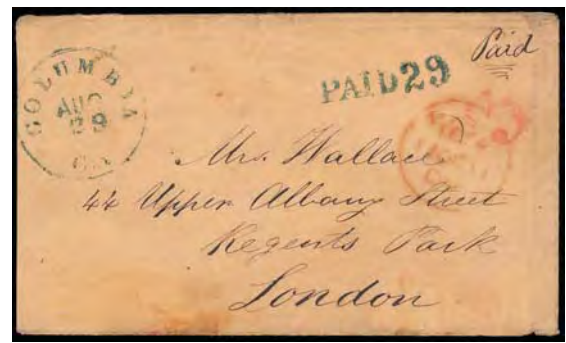 COLUMBIA
AUG
29
PAID 29
Paid
Mrs. Wallace
44 Upper Albany Street
Regents Park
London